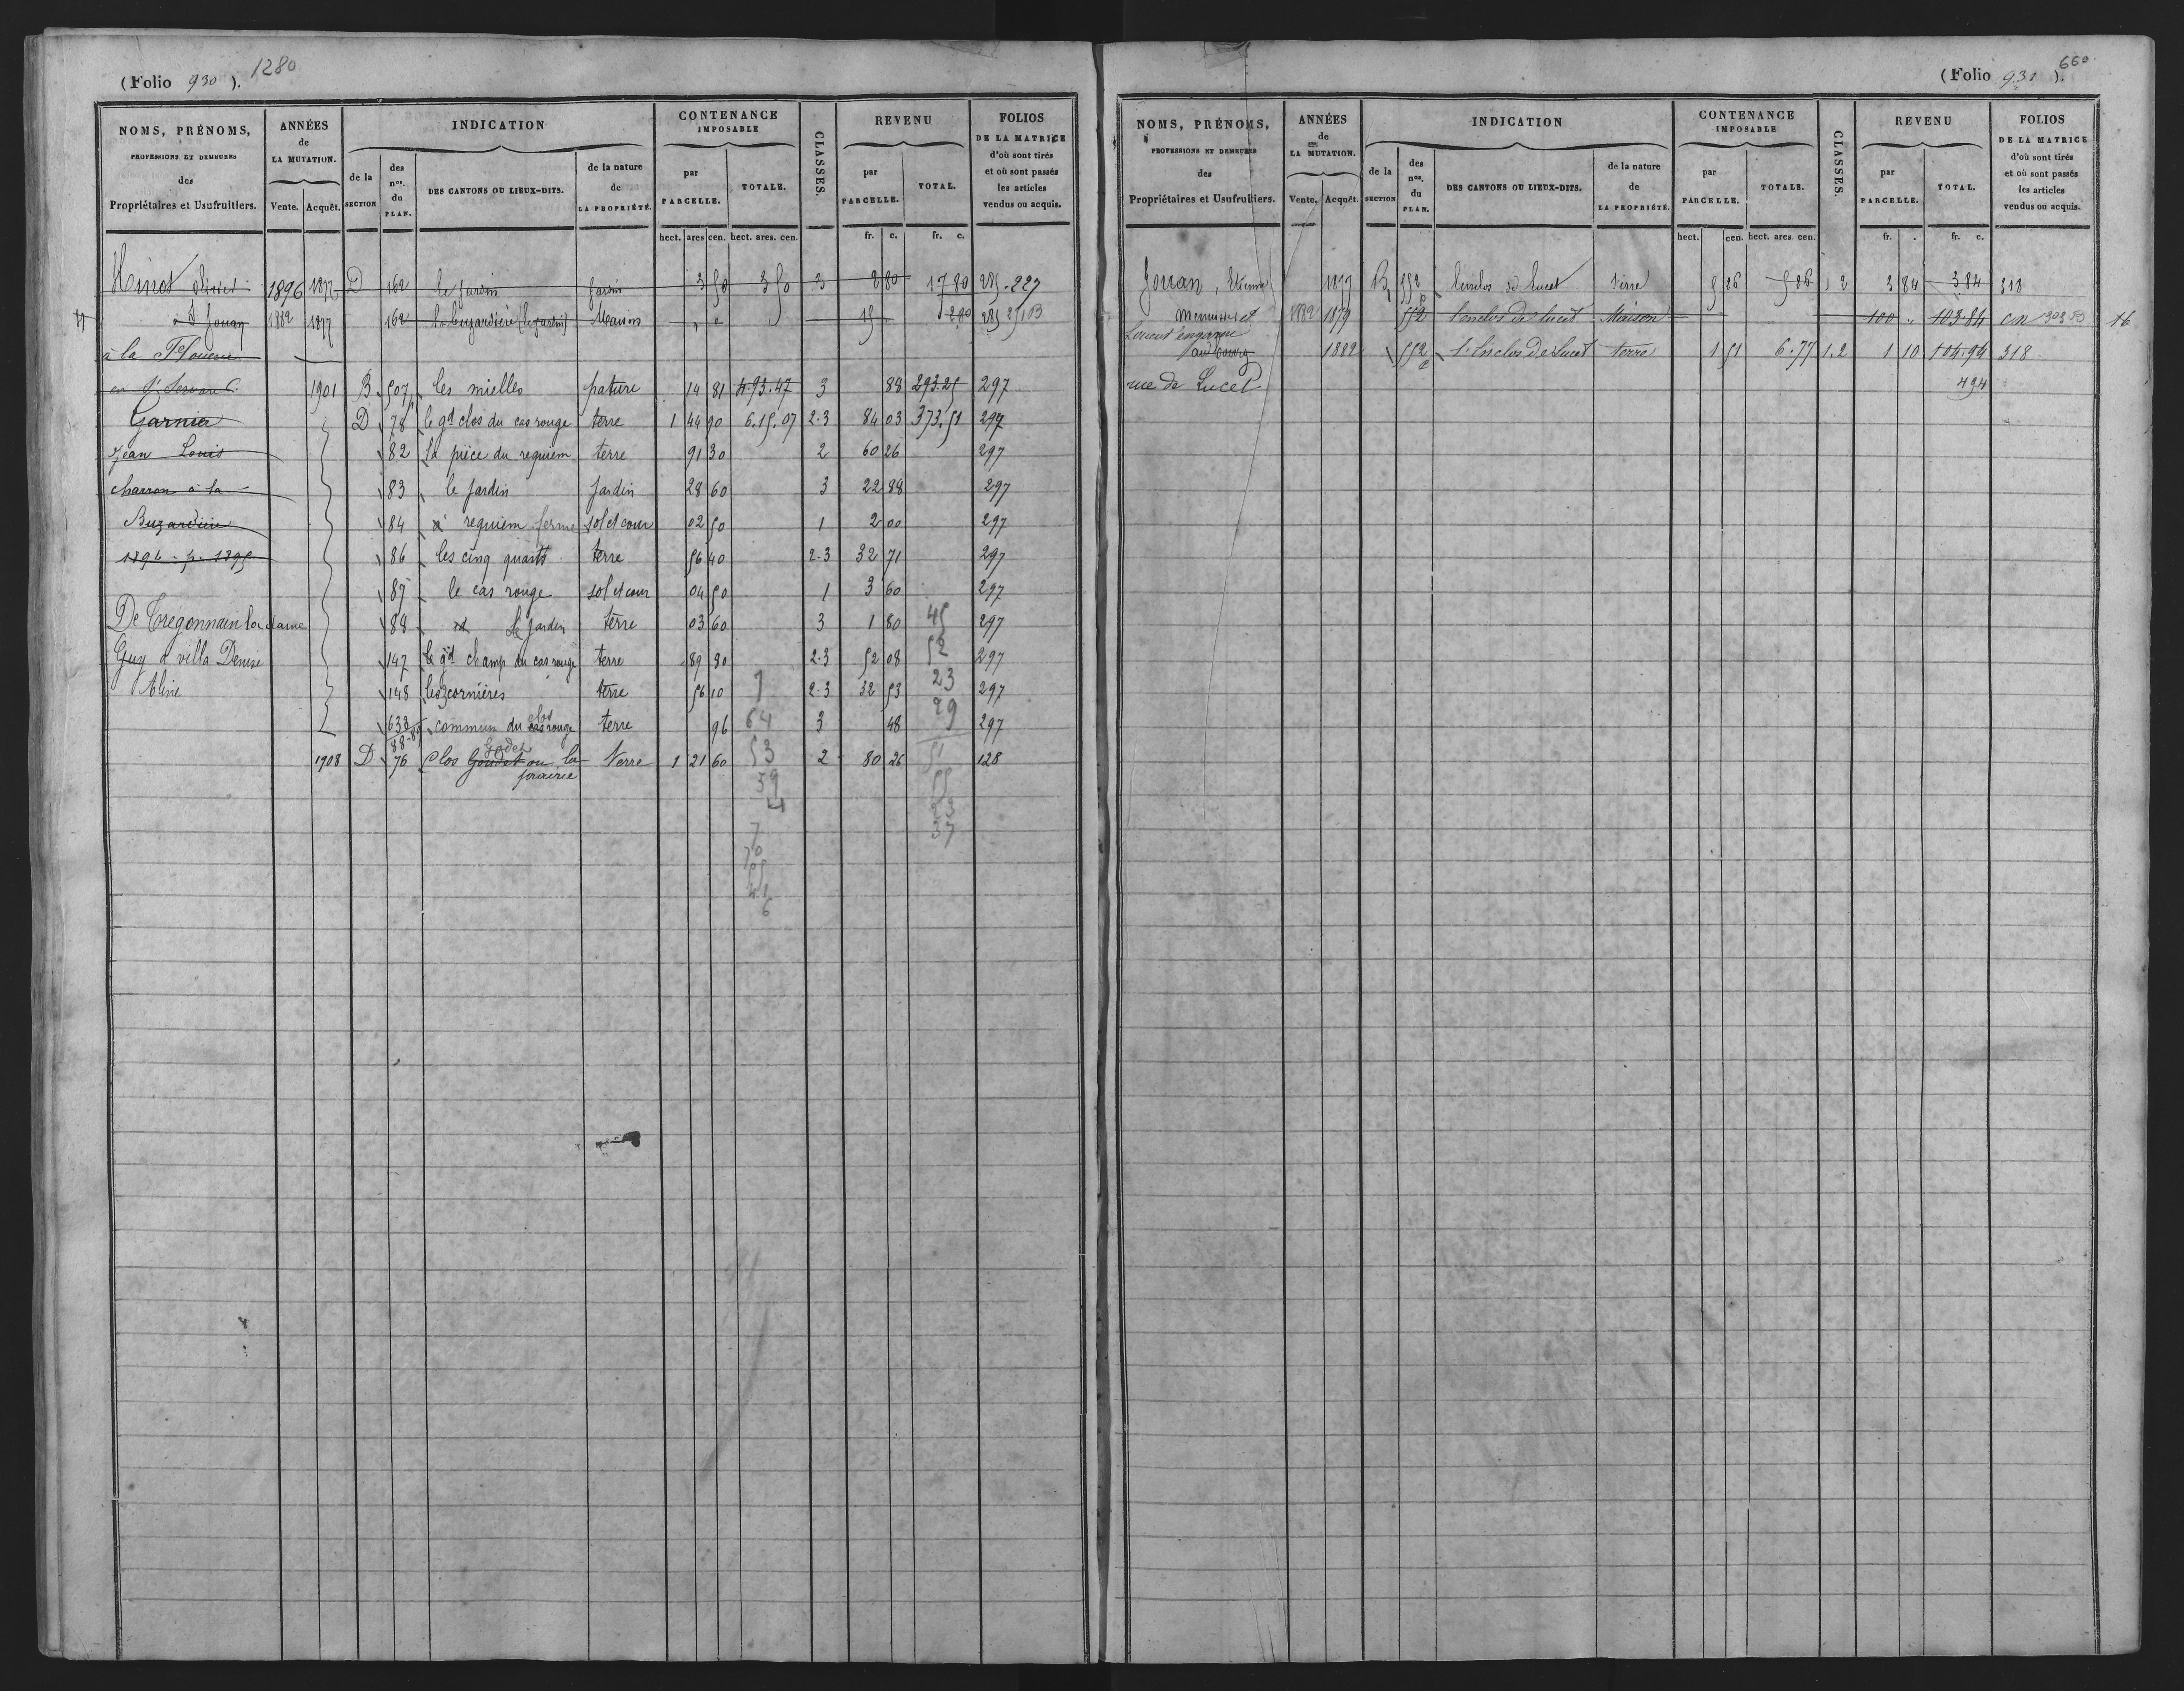 (Folio 930). 1280
NOMS, PRÉNOMS, PROFESSIONS ET DEMEURES des Propriétaires et Usufruitiers.
ANNÉES de LA MUTATION. Vente. Acquêt.
INDICATION de la SECTION des nos. du PLAN. DES CANTONS OU LIEUX-DITS. de la nature de LA PROPRIÉTÉ.
CONTENANCE IMPOSABLE par PARCELLE. TOTALE.
CLASSES.
REVENU par PARCELLE. TOTAL.
FOLIOS DE LA MATRICE d'où sont tirés et où sont passés les articles vendus ou acquis.
hect. ares cen. hect. ares. cen. fr. c. fr. c.
1896 1877 D 162 le jardin jardin 3 50 3 50 3 2 80 17 80 285-227
à St Jouan 1882 1877 162 la Buzardière (le jardin) Maison " " 15 2 80 285 25
à la
en St Servan 1901 B 507 les mielles pature 14 81 4.93.47 3 88 293.25 297
Garnier D 78 le gd clos du cas rouge terre 1 44 90 6.15.07 2-3 84 03 373.51 297
Jean Louis 82 la pièce du requiem terre 91 30 2 60 26 297
charron à la 83 le jardin Jardin 28 60 3 22 88 297
Buzardière 84 requiem ferme sol et cour 02 50 1 2 00 297
1894-p-1895 86 les cinq quarts terre 56 40 2-3 32 71 297
87 le cas rouge sol et cour 04 50 1 3 60 297
De Trégonnain la dame 88 id le Jardin terre 03 60 3 1 80 45 297
Guy à villa Denise 147 le gd champ du cas rouge terre 89 80 2-3 52 08 52 297
Aline 148 les cornières terre 56 10 7 2-3 32 53 23 297
633 commun du clos cas rouge terre 96 64 3 48 29 297
88-89
1908 D 76 Clos Goudet Godet ou la prairie Terre 1 21 60 53 2 80 26 51 128
39 55
4 23
7 37
70
41
6
(Folio 931). 660
NOMS, PRÉNOMS, PROFESSIONS ET DEMEURES des Propriétaires et Usufruitiers.
ANNÉES de LA MUTATION. Vente. Acquêt.
INDICATION de la SECTION des nos. du PLAN. DES CANTONS OU LIEUX-DITS. de la nature de LA PROPRIÉTÉ.
CONTENANCE IMPOSABLE par PARCELLE. TOTALE.
CLASSES.
REVENU par PARCELLE. TOTAL.
FOLIOS DE LA MATRICE d'où sont tirés et où sont passés les articles vendus ou acquis.
hect. cen. hect. ares. cen. fr. fr. c.
Jouan, Etienne 1879 B 552 l'enclos de lucet Terre 5 26 5 26 1 2 3 84 3 84 318
menuisier et 1882 1879 552 l'enclos de lucet Maison 100 " 103.84 CN 303
au bourg 1882 552 l'Enclos de Lucet terre 1 51 6.77 1.2 1 10 104.94 318
rue de Lucet 4 94